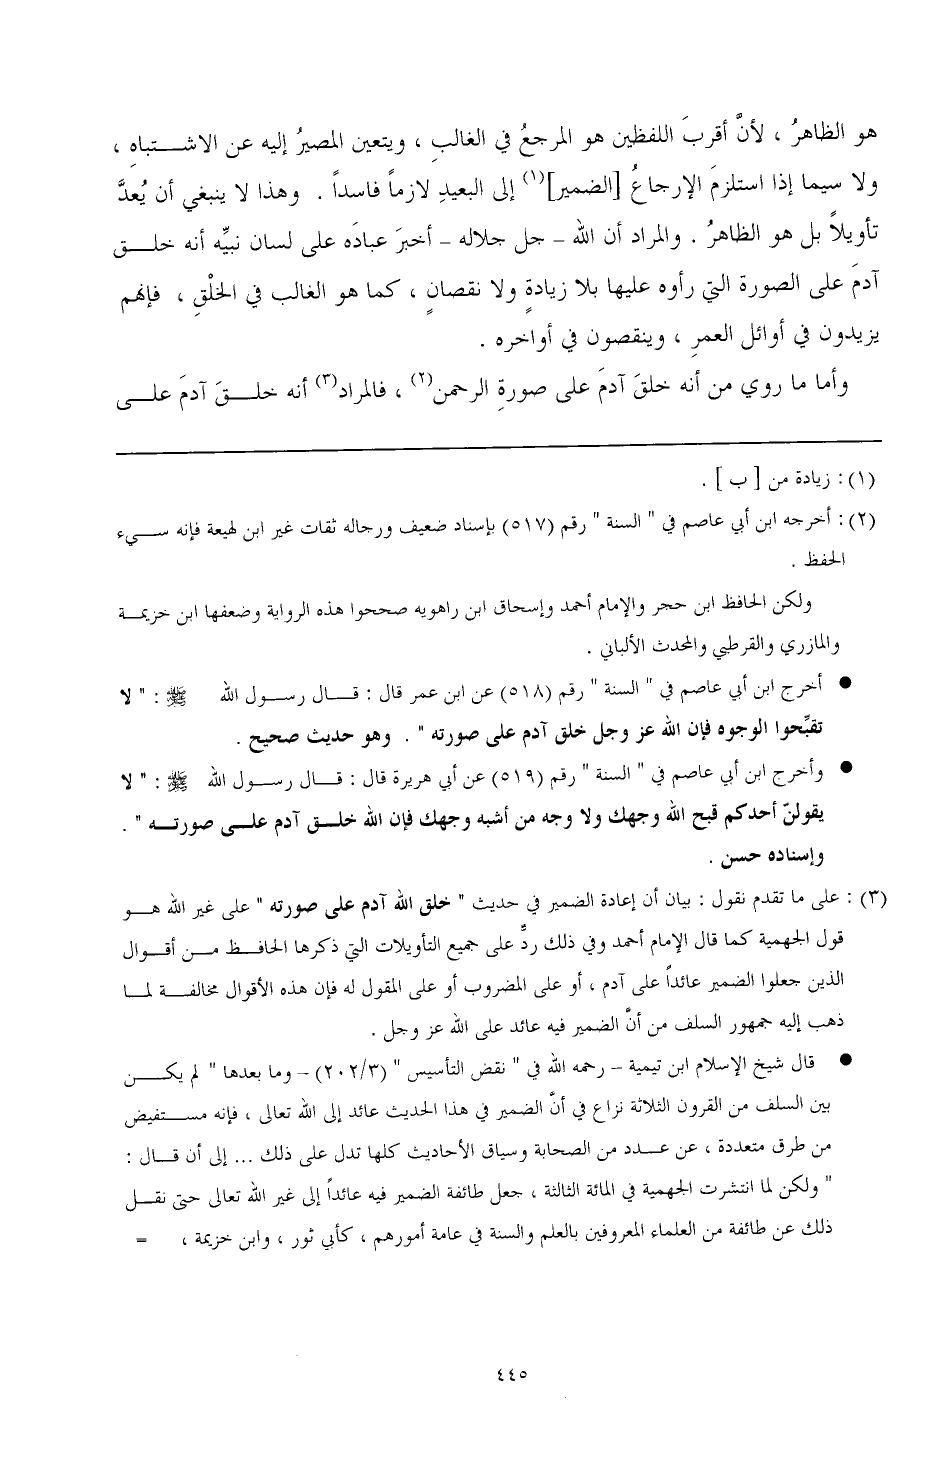 هو الظاهرُ ، لأنَّ أقربَ اللفظين هو المرجعُ في الغالبِ ، ويتعين المصيرُ إليه عن الاشتباهِ ،
ولا سيما إذا استلزمَ الإرجاعُ [الضمير](١) إلى البعيدِ لازماً فاسداً . وهذا لا ينبغي أن يُعدَّ
تأويلاً بل هو الظاهرُ . والمراد أن الله – جل جلاله – أخبرَ عبادَه على لسان نبيِّه أنه خلق
آدمَ على الصورة التي رأوه عليها بلا زيادةٍ ولا نقصانٍ ، كما هو الغالب في الخلْقِ ، فإنهم
يزيدون في أوائل العمرِ ، وينقصون في أواخره .
وأما ما روي من أنه خلقَ آدمَ على صورةِ الرحمن(٢) ، فالمراد(٣) أنه خلقَ آدمَ على
(١) : زيادة من [ ب ] .
(٢) : أخرجه ابن أبي عاصم في " السنة " رقم (٥١٧) بإسناد ضعيف ورجاله ثقات غير ابن لهيعة فإنه سيء
الحفظ .
ولكن الحافظ ابن حجر والإمام أحمد وإسحاق ابن راهويه صححوا هذه الرواية وضعفها ابن خزيمة
والمازري والقرطبي والمحدث الألباني .
● أخرج ابن أبي عاصم في " السنة " رقم (٥١٨) عن ابن عمر قال : قال رسول الله ﷺ : " لا
تقبِّحوا الوجوه فإن الله عز وجل خلق آدم على صورته " . وهو حديث صحيح .
● وأخرج ابن أبي عاصم في " السنة " رقم (٥١٩) عن أبي هريرة قال : قال رسول الله ﷺ : " لا
يقولنّ أحدكم قبح الله وجهك ولا وجه من أشبه وجهك فإن الله خلق آدم على صورته " .
وإسناده حسن .
(٣) : على ما تقدم نقول : بيان أن إعادة الضمير في حديث " خلق الله آدم على صورته " على غير الله هو
قول الجهمية كما قال الإمام أحمد وفي ذلك ردٌّ على جميع التأويلات التي ذكرها الحافظ من أقوال
الذين جعلوا الضمير عائداً على آدم ، أو على المضروب أو على المقول له فإن هذه الأقوال مخالفة لما
ذهب إليه جمهور السلف من أنَّ الضمير فيه عائد على الله عز وجل .
● قال شيخ الإسلام ابن تيمية – رحمه الله في " نقض التأسيس " (٢٠٢/٣) – وما بعدها " لم يكن
بين السلف من القرون الثلاثة نزاع في أنَّ الضمير في هذا الحديث عائد إلى الله تعالى ، فإنه مستفيض
من طرق متعددة ، عن عدد من الصحابة وسياق الأحاديث كلها تدل على ذلك ... إلى أن قال :
" ولكن لما انتشرت الجهمية في المائة الثالثة ، جعل طائفة الضمير فيه عائداً إلى غير الله تعالى حتى نقل
ذلك عن طائفة من العلماء المعروفين بالعلم والسنة في عامة أمورهم ، كأبي ثور ، وابن خزيمة ، =
٤٤٥